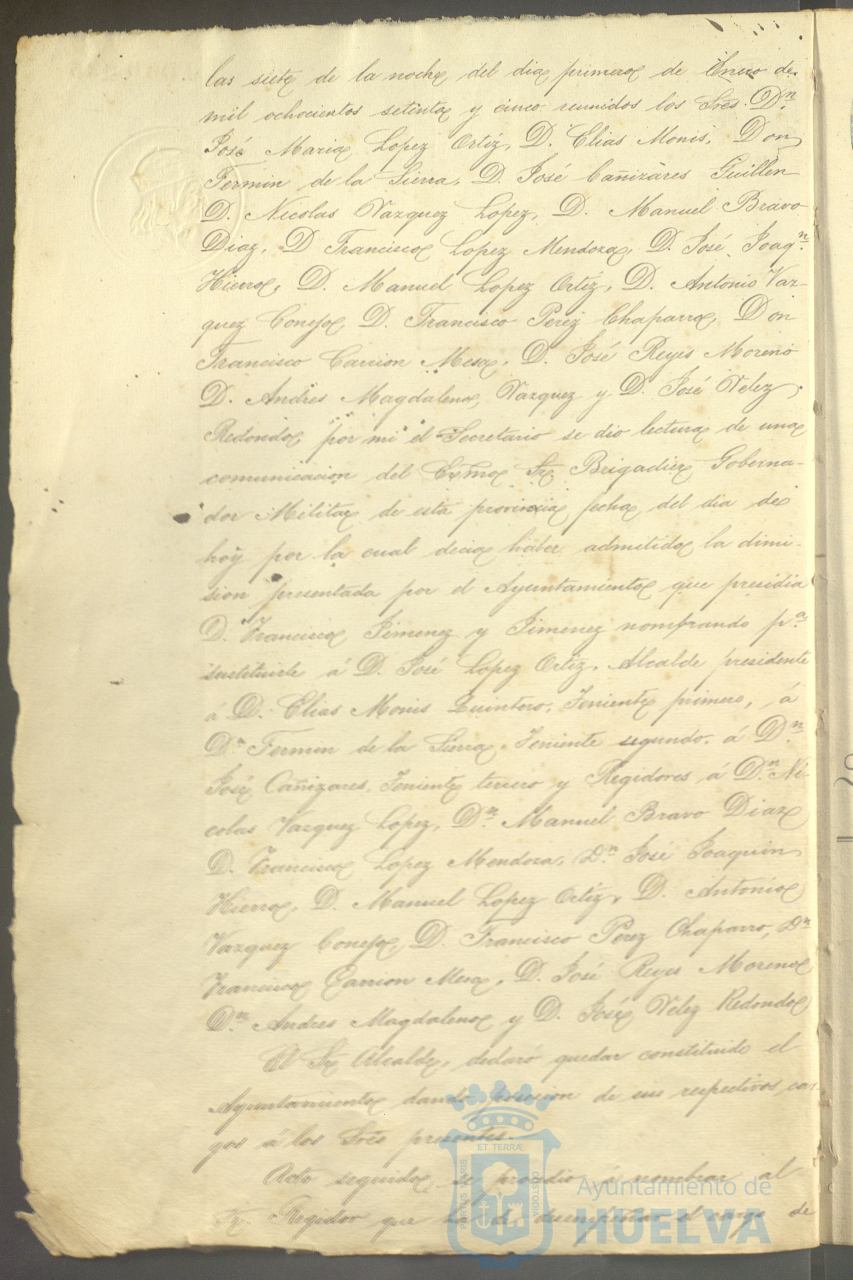 las siete de la noche del dia primero de Enero de
mil ochocientos setenta y cinco reunidos los Sres. Dn.
José Maria Lopez Ortiz, D. Elias Monis, Don
Fermin de la Sierra, D. José Cañizares Guillen
D. Nicolas Vazquez Lopez, D. Manuel Bravo
Diaz, D Francisco Lopez Mendoza, D. José Joaqn.
Hierro, D. Manuel Lopez Ortiz, D. Antonio Vaz-
quez Conejo, D. Francisco Perez Chaparro, Don
Francisco Carrion Mesa, D. José Reyes Moreno
D. Andres Magdaleno, Vazquez y D. José Velez
Redondo, por mi el Secretario se dio lectura de una
comunicacion del Exmo Sr Brigadier Goberna-
dor Militar de esta provincia fecha del dia de
hoy por la cual decia haber admitido la dimi-
sion presentada por el Ayuntamiento que presidia
D. Francisco Jimenez y Jimenez nombrando pa.
sustituirle á D. José Lopez Ortiz, Alcalde presidente
á D. Elias Monis Quintero, Teniente primero, á
Dn Fermin de la Sierra, Teniente segundo, á Dn.
José Cañizares, Teniente tercero y Regidores á Dn. Ni-
colas Vazquez Lopez, Dn. Manuel Bravo Diaz
D. Francisco Lopez Mendoza, Dn. José Joaquin
Hierro, D. Manuel Lopez Ortiz, D. Antonio
Vazquez Conejo, D. Francisco Perez Chaparro, Dn
Francisco Carrion Mesa, D. José Reyes Moreno
Dn. Andres Magdaleno y D. José Velez Redondo
El Sr Alcalde, declaró quedar constituido el
Ayuntamiento dando posesion de sus respectivos car-
gos á los Sres presentes.
Acto seguido, se procedio á nombrar al
Sr. Regidor que ha de desempeñar el cargo de
ET TERRÆ
PORTUS MARIS
CUSTODIA
Ayuntamiento de
HUELVA